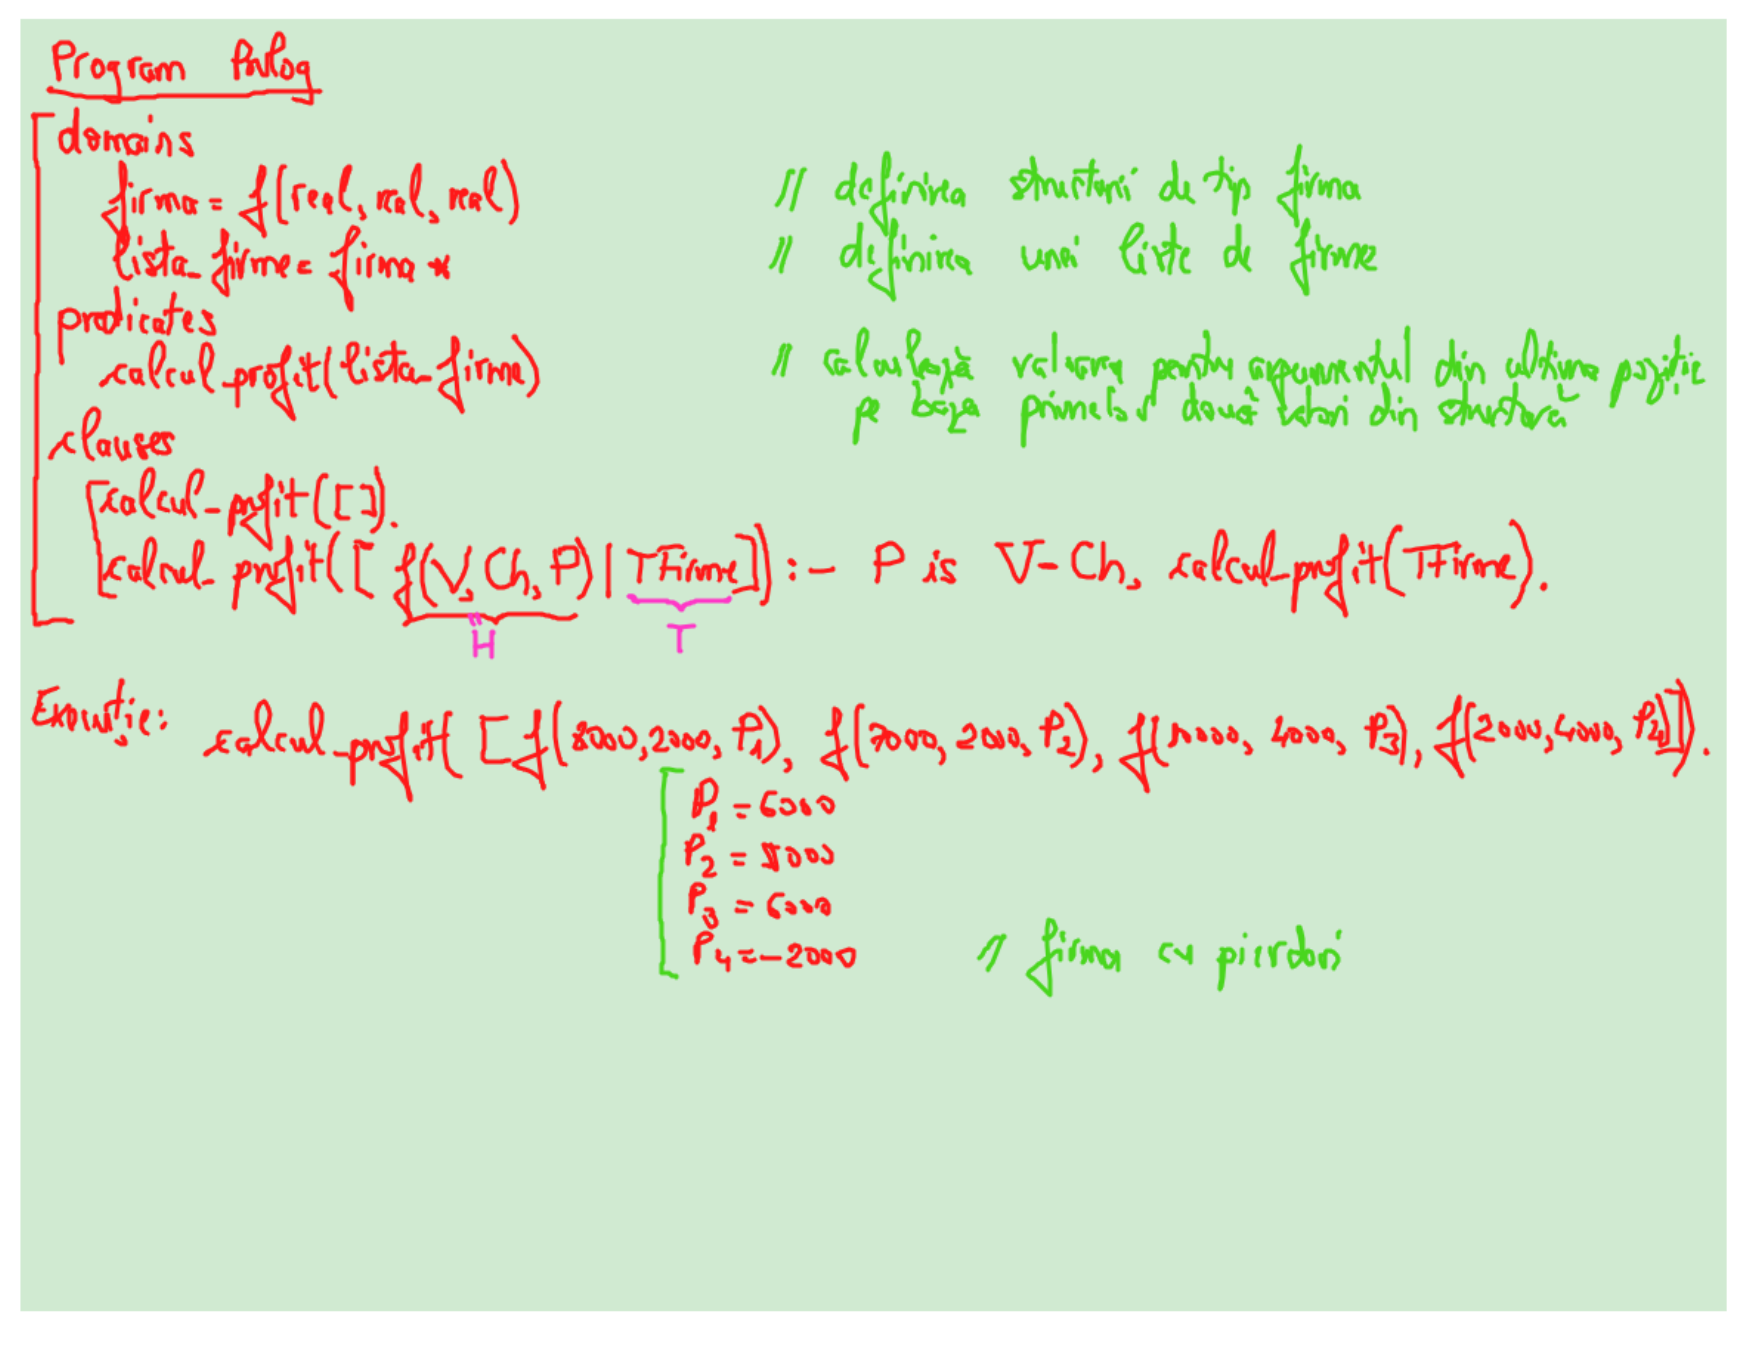 Program Prolog
domains
firma = f(real, real, real) // definirea structurii de tip firma
lista_firme = firma * // definirea unei liste de firme
predicates
calcul_profit(lista_firme) // calculează valoarea pentru argumentul din ultima poziție
pe baza primelor două valori din structură
clauses
calcul_profit([]).
calcul_profit([f(V, Ch, P) | TFirme]) :- P is V - Ch, calcul_profit(TFirme).
H T
Execuție: calcul_profit([f(8000, 2000, P1), f(7000, 2000, P2), f(10000, 4000, P3), f(2000, 4000, P4)]).
P1 = 6000
P2 = 5000
P3 = 6000
P4 = -2000 // firma cu pierderi